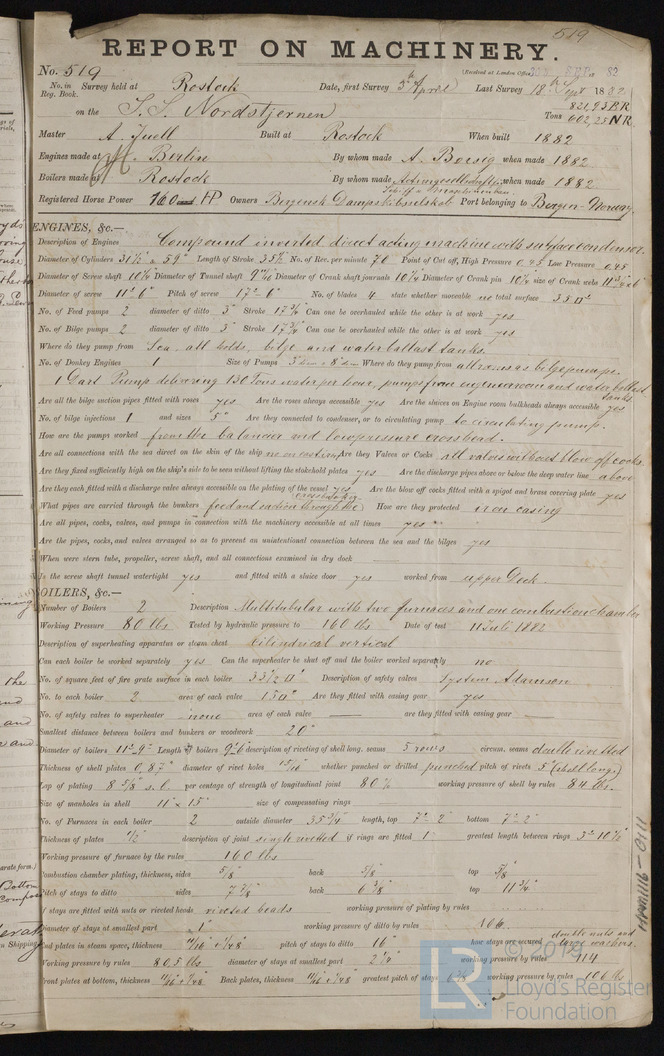 519
REPORT ON MACHINERY.
No. 519 (Received at London Office 82
No. in Survey held at Rostock Date, first Survey 5th April Last Survey 18th Sept 1882
Reg. Book.
821,93 BR
on the S.S. Nordstjernen Tons 602,25 NR
Master A. Juell Built at Rostock When built 1882
Engines made at Berlin By whom made A. Borsig when made 1882
Boilers made at Rostock By whom made when made 1882
Registered Horse Power 160 HP Owners Bergensk Dampskibsselskab Port belonging to Bergen - Norway
ENGINES, &c.—
Description of Engines Compound inverted direct acting machine with surface condensor.
Diameter of Cylinders 31½ & 59" Length of Stroke 35½ No. of Rev. per minute 70 Point of Cut off, High Pressure 0,45 Low Pressure 0,45
Diameter of Screw shaft 10⅛ Diameter of Tunnel shaft Diameter of Crank shaft journals 10¼ Diameter of Crank pin 10¼ size of Crank webs
Diameter of screw 11'-6" Pitch of screw 17'-6" No. of blades 4 state whether moveable no total surface 35 □'
No. of Feed pumps 2 diameter of ditto 3" Stroke 17¾" Can one be overhauled while the other is at work yes
No. of Bilge pumps 2 diameter of ditto 3" Stroke 17¾" Can one be overhauled while the other is at work yes
Where do they pump from Sea, all holds, bilge and waterballast tanks.
No. of Donkey Engines 1 Size of Pumps Where do they pump from all rooms as bilgepumps.
1 Pump delivering 130 Tons water per hour, pumps from engineroom and waterballast tanks
Are all the bilge suction pipes fitted with roses yes Are the roses always accessible yes Are the sluices on Engine room bulkheads always accessible yes
No. of bilge injections 1 and sizes 5" Are they connected to condenser, or to circulating pump to circulating pump.
How are the pumps worked from the balancier and lowpressure crosshead.
Are all connections with the sea direct on the skin of the ship no on casting Are they Valves or Cocks all valves without blow off cocks
Are they fixed sufficiently high on the ship's side to be seen without lifting the stokehold plates yes Are the discharge pipes above or below the deep water line above
Are they each fitted with a discharge valve always accessible on the plating of the vessel yes Are the blow off cocks fitted with a spigot and brass covering plate yes
What pipes are carried through the bunkers feed and suction through the How are they protected iron casing
Are all pipes, cocks, valves, and pumps in connection with the machinery accessible at all times yes
Are the pipes, cocks, and valves arranged so as to prevent an unintentional connection between the sea and the bilges yes
When were stern tube, propeller, screw shaft, and all connections examined in dry dock —
Is the screw shaft tunnel watertight yes and fitted with a sluice door yes worked from upper Deck.
OILERS, &c.—
Number of Boilers 2 Description Multitubular with two furnaces and one combustionchamber
Working Pressure 80 lbs Tested by hydraulic pressure to 160 lbs Date of test 11 Juli 1882
Description of superheating apparatus or steam chest Cilindrical vertical
Can each boiler be worked separately yes Can the superheater be shut off and the boiler worked separately no
No. of square feet of fire grate surface in each boiler 33½ □' Description of safety valves System Adamson
No. to each boiler 2 area of each valve 15 □" Are they fitted with easing gear yes
No. of safety valves to superheater none area of each valve — are they fitted with easing gear —
Smallest distance between boilers and bunkers or woodwork 20"
Diameter of boilers 11'-9" Length of boilers 9'-6 description of riveting of shell long. seams 5 rows circum. seams double rivetted
Thickness of shell plates 0,87" diameter of rivet holes 15/16" whether punched or drilled punched pitch of rivets 5" (shell long.)
Lap of plating per centage of strength of longitudinal joint 80 % working pressure of shell by rules 84 lbs.
Size of manholes in shell 11" x 15" size of compensating rings
No. of Furnaces in each boiler 2 outside diameter 35¾" length, top 7'-2" bottom 7'-2"
Thickness of plates 1/2" description of joint single rivetted if rings are fitted 1 greatest length between rings 3'-10½"
Working pressure of furnace by the rules 160 lbs
ombustion chamber plating, thickness, sides 5/8" back 5/8" top 5/8"
Pitch of stays to ditto sides 7⅞" back 6⅜" top 11¾"
f stays are fitted with nuts or riveted heads riveted heads working pressure of plating by rules
Diameter of stays at smallest part 1" working pressure of ditto by rules 106
End plates in steam space, thickness pitch of stays to ditto 16" how stays are secured double nuts and large washers.
Working pressure by rules 80.5 lbs diameter of stays at smallest part 2¼" working pressure by rules 114
Front plates at bottom, thickness Back plates, thickness greatest pitch of stays working pressure by rules 106 lbs
© 2019
LR
Lloyd's Register
Foundation